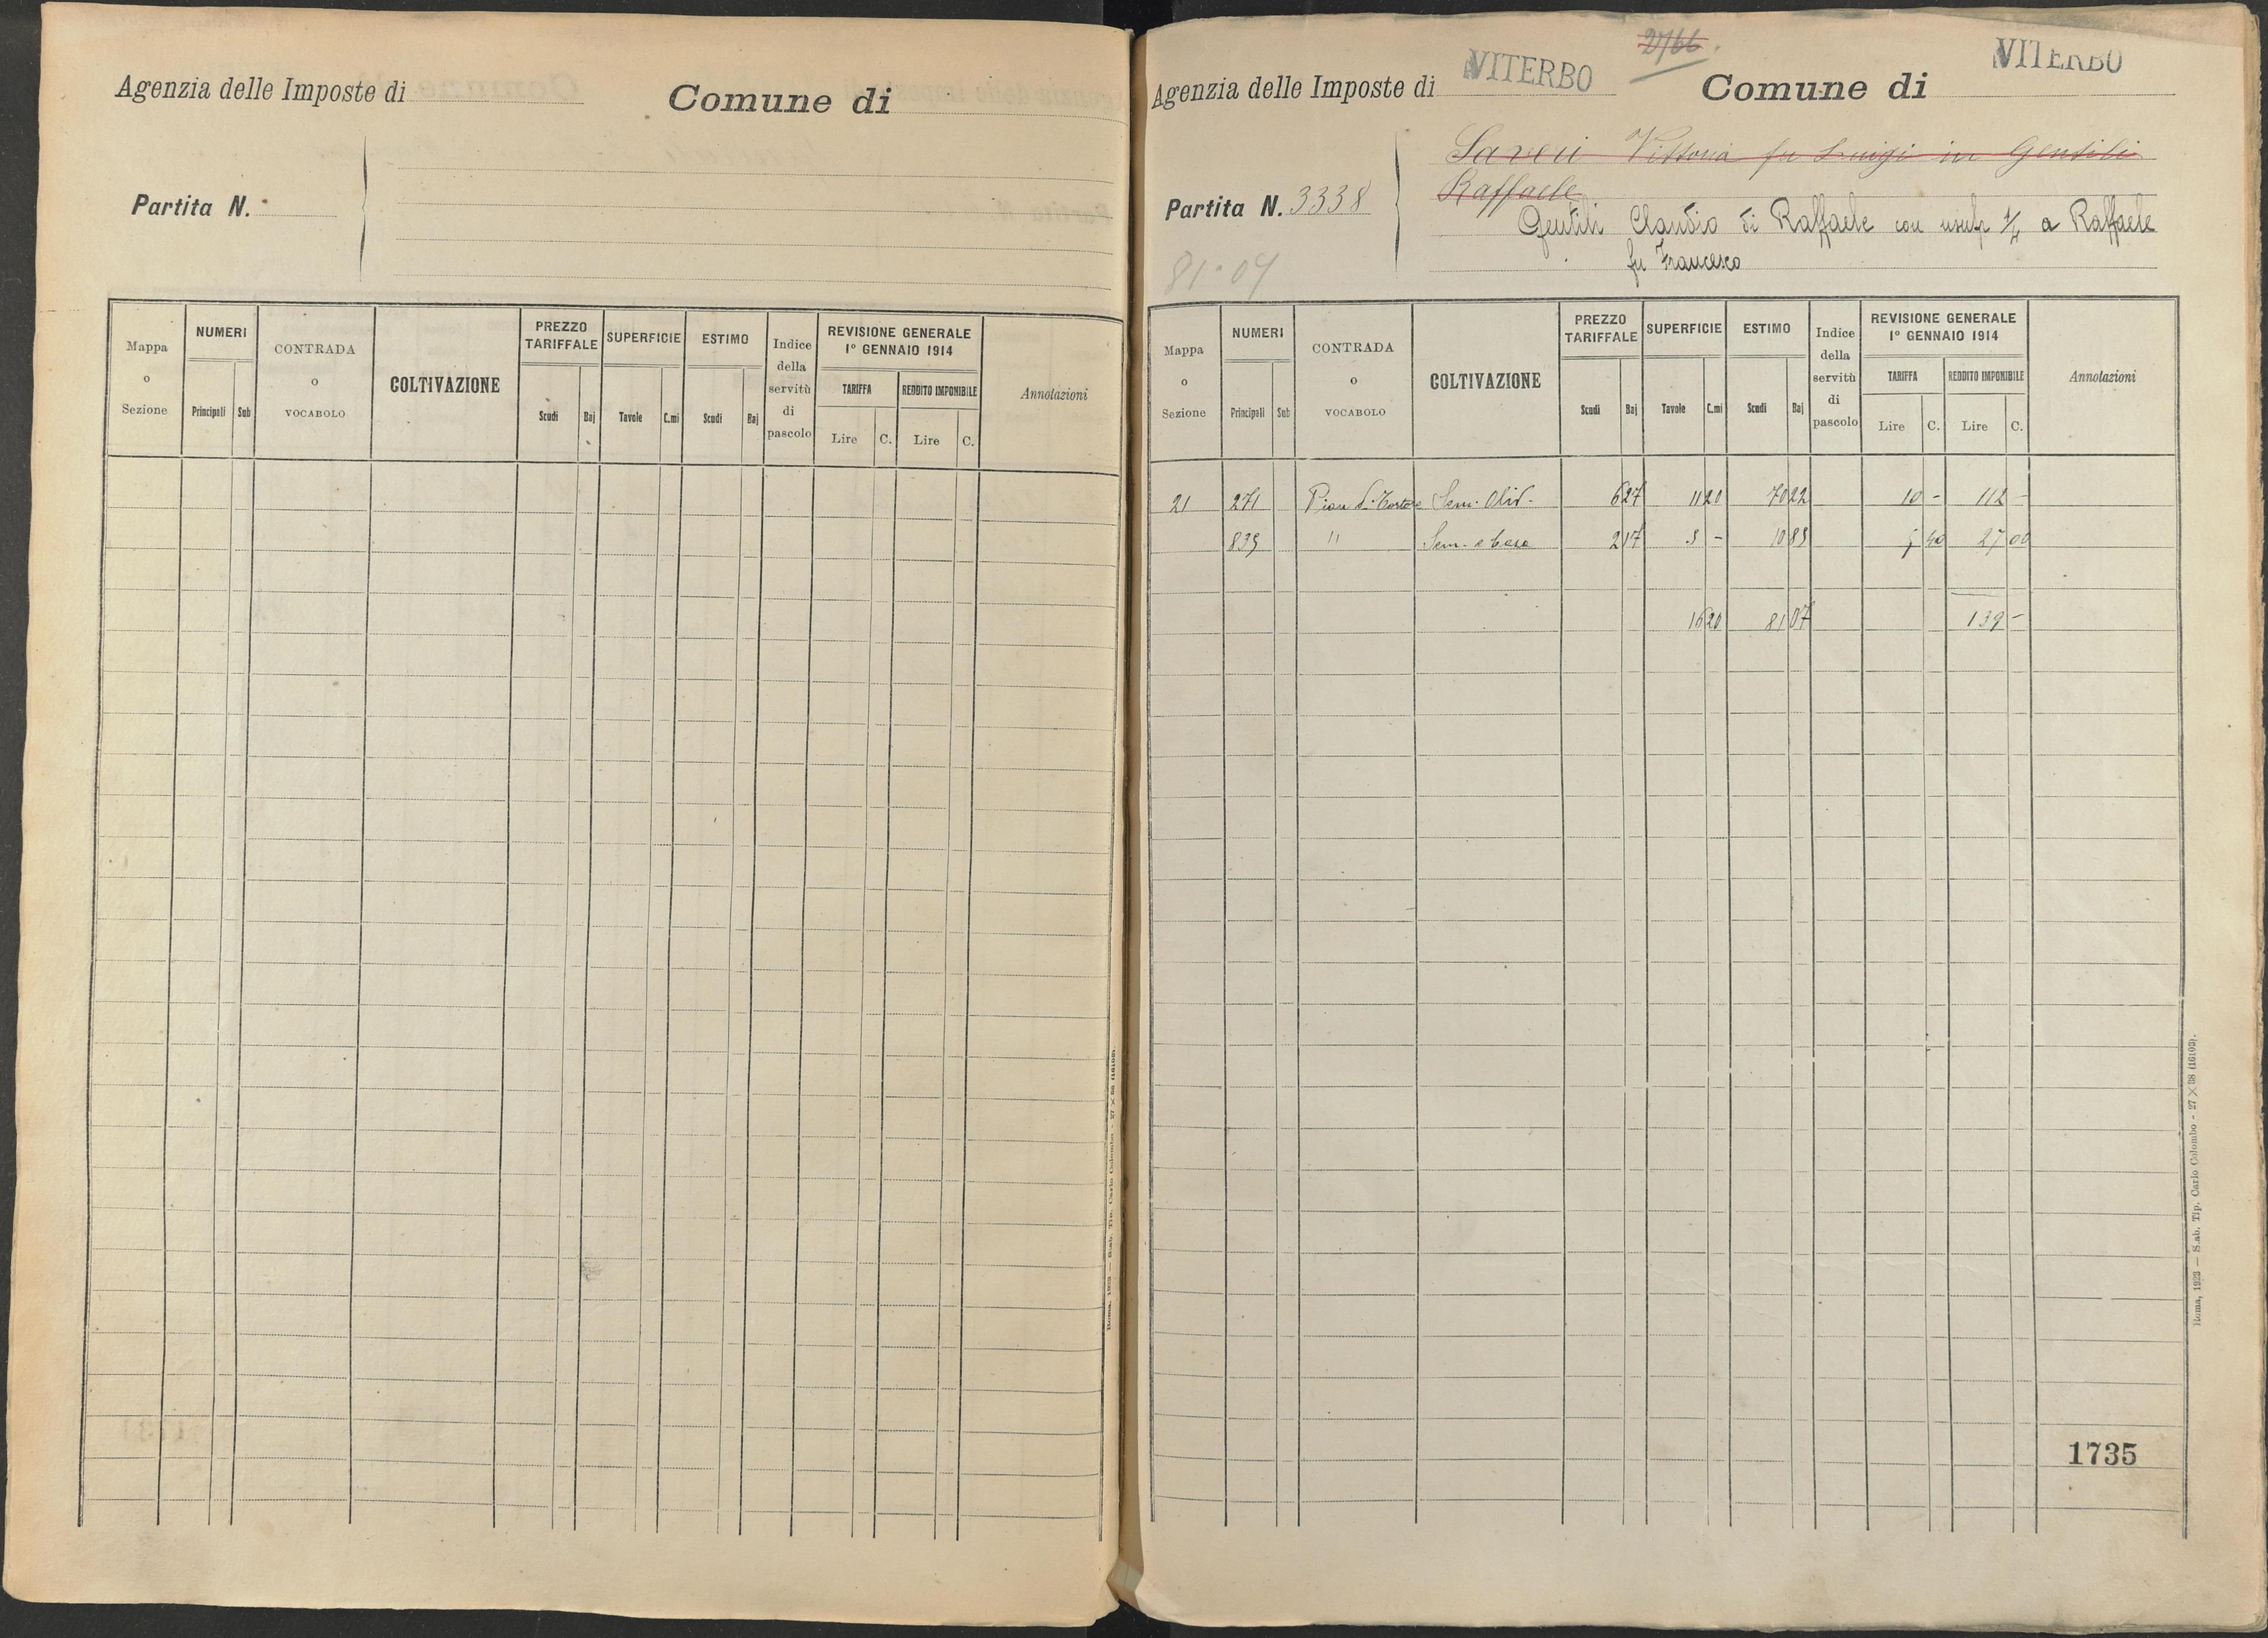 Agenzia delle Imposte di
Comune di
Partita N.
Mappa o Sezione
NUMERI
Principali Sub
CONTRADA O VOCABOLO
COLTIVAZIONE
PREZZO TARIFFALE
Scudi Baj
SUPERFICIE
Tavole C.mi
ESTIMO
Scudi Baj
Indice della servitù di pascolo
REVISIONE GENERALE
1° GENNAIO 1914
TARIFFA
Lire C.
REDDITO IMPONIBILE
Lire C.
Annotazioni
2766.
Agenzia delle Imposte di VITERBO
Comune di VITERBO
Saveri Vittoria fu Luigi in Gentili
Raffaele
Partita N. 3338
Gentili Claudio di Raffaele con usuf. 1/4 a Raffaele
fu Francesco
81.07
Mappa o Sezione
NUMERI
Principali Sub
CONTRADA O VOCABOLO
COLTIVAZIONE
PREZZO TARIFFALE
Scudi Baj
SUPERFICIE
Tavole C.mi
ESTIMO
Scudi Baj
Indice della servitù di pascolo
REVISIONE GENERALE
1° GENNAIO 1914
TARIFFA
Lire C.
REDDITO IMPONIBILE
Lire C.
Annotazioni
21 271 Pian di Tortora Sem. Oliv. 6 27 11 20 70 22 10 - 112 -
839 " Sem. e Casa 2 17 5 - 10 85 5 40 27 00
16 20 81 07 139 -
1735
Roma, 1923 — Stab. Tip. Carlo Colombo - 27 × 38 (16103).